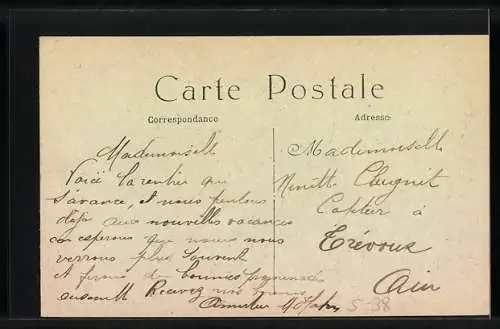 Carte Postale
Correspondance
Adresse
Mademoiselle
Voici la rentrée qui
s'avance, et nous pensons
déjà aux nouvelles vacances
en esperons que nous nous
verrons plus souvent
et ferons de bonnes
ensemble Recevez nos
Mademoiselle
Ninette Cheugnet
à
Trévoux
Ain
5-38